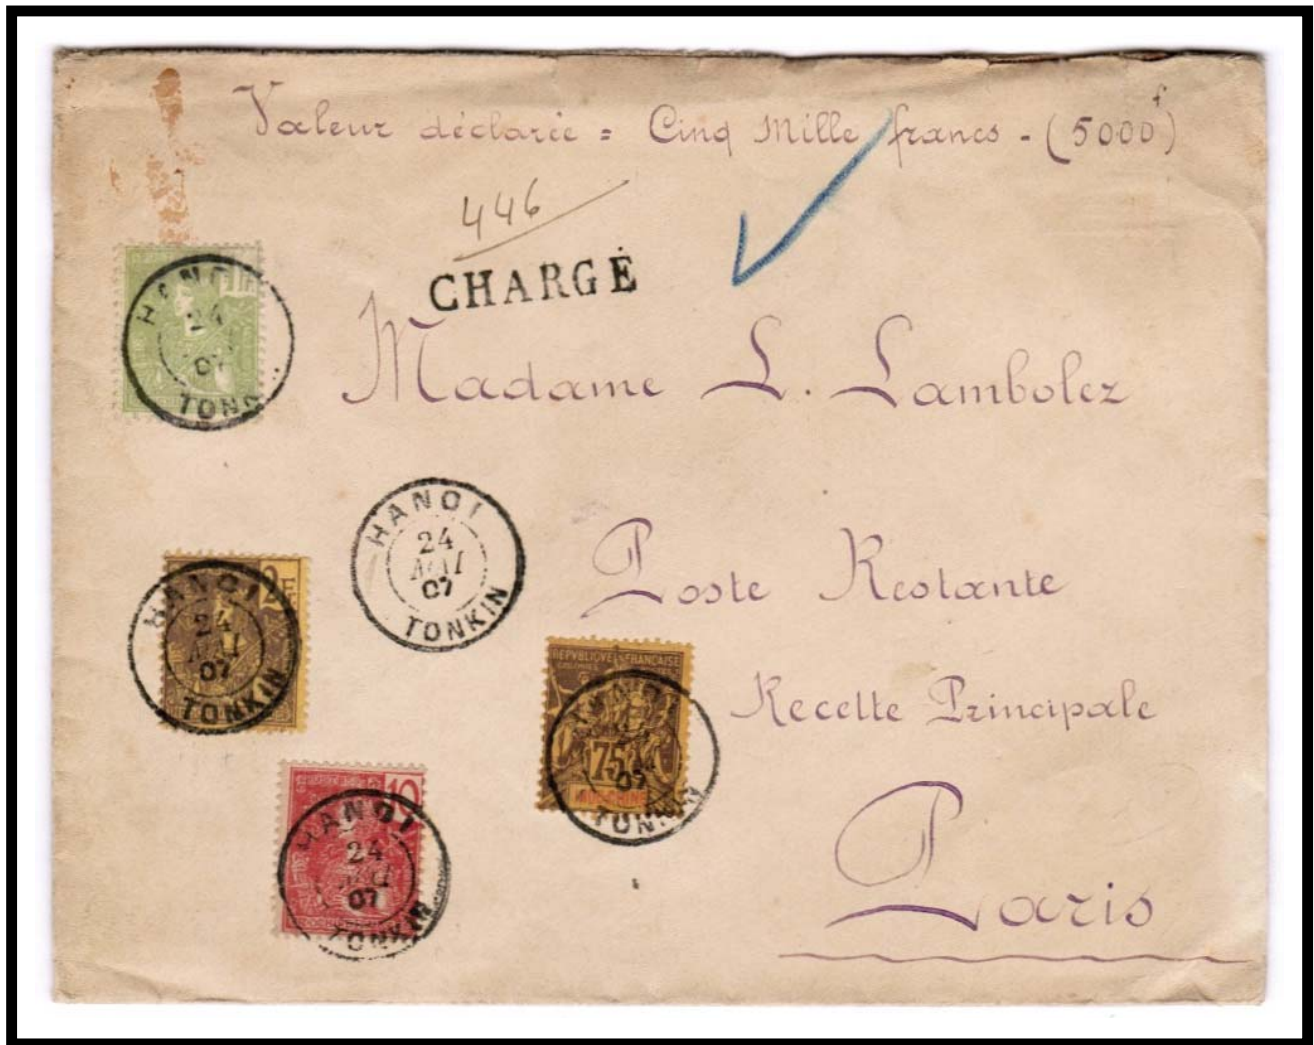 Valeur déclarée = Cinq Mille francs - (5000f)
446
CHARGÉ
1F
HANOI
24
07
TONK
Madame L. Lambolez
HANOI
24
AOUT
07
TONKIN
Poste Restante
2F
HANOI
24
07
TONKIN
REPUBLIQUE FRANCAISE
COLONIES
75
INDO-CHINE
07
TONKIN
Recette Principale
10
HANOI
24
07
TONKIN
Paris